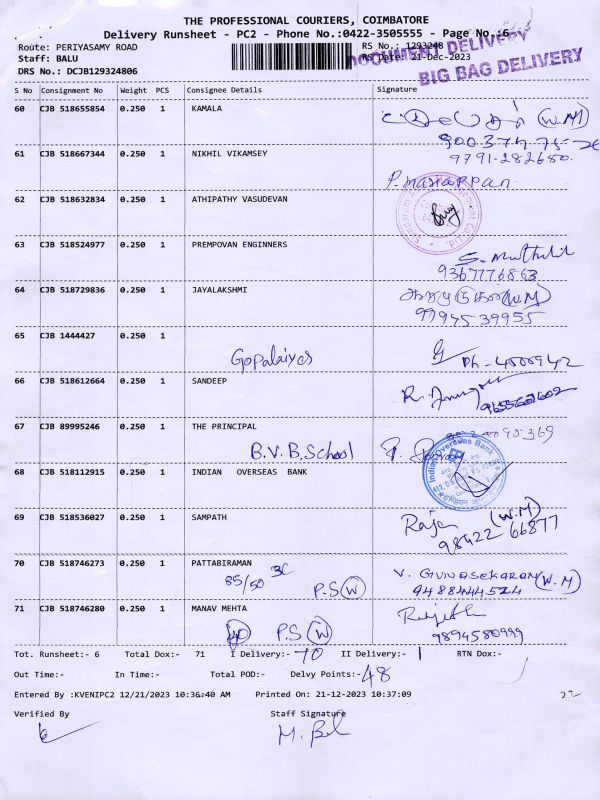 THE PROFESSIONAL COURIERS, COIMBATORE
Delivery Runsheet - PC2 - Phone No.:0422-3505555 - Page No.:6
Route: PERIYASAMY ROAD
RS No.: 1293248
DOCUMENT DELIVERY
Staff: BALU
RS Date: 21-Dec-2023
BIG BAG DELIVERY
DRS No.: DCJB129324806
S No Consignment No Weight PCS Consignee Details Signature
60 CJB 518655854 0.250 1 KAMALA
(W.M)
61 CJB 518667344 0.250 1 NIKHIL VIKAMSEY
9791-282680.
P. mariappan
62 CJB 518632834 0.250 1 ATHIPATHY VASUDEVAN
63 CJB 518524977 0.250 1 PREMPOVAN ENGINNERS
9367776863
64 CJB 518729836 0.250 1 JAYALAKSHMI
(W.M)
9994539955
65 CJB 1444427 0.250 1
Ph-4500942
66 CJB 518612664 0.250 1 SANDEEP
67 CJB 89995246 0.250 1 THE PRINCIPAL
B.V.B.School
68 CJB 518112915 0.250 1 INDIAN OVERSEAS BANK
Indian Overseas Bank
69 CJB 518536027 0.250 1 SAMPATH
Raja (W.M)
98422 66877
70 CJB 518746273 0.250 1 PATTABIRAMAN
85/50 3C P.S (W)
V. GUNASEKARAN (W.M)
9488444524
71 CJB 518746280 0.250 1 MANAV MEHTA
P.S (W)
9894580999
Tot. Runsheet:- 6 Total Dox:- 71 I Delivery:- 70 II Delivery:- 1 RTN Dox:-
Out Time:- In Time:- Total POD:- Delvy Points:- 48
Entered By :KVENIPC2 12/21/2023 10:36:40 AM Printed On: 21-12-2023 10:37:09
Verified By Staff Signature